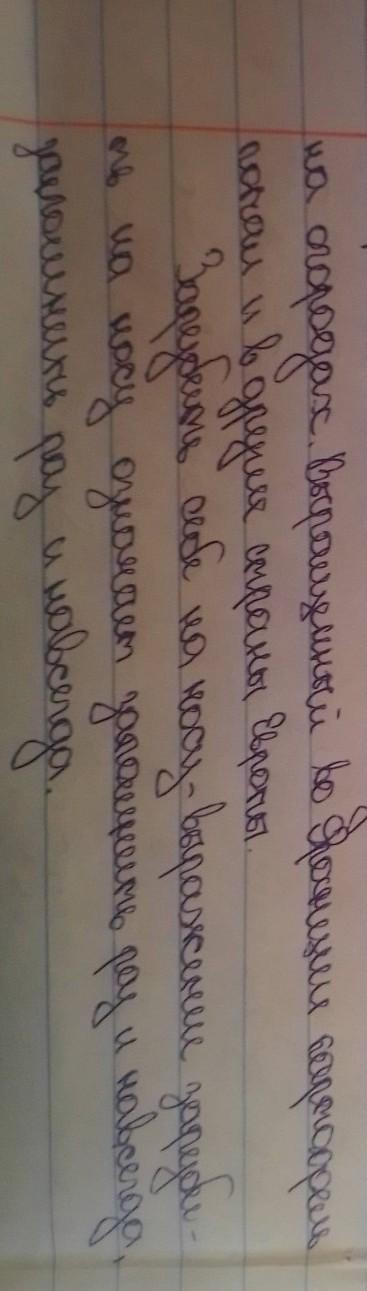 на огородах. Выращенный во Франции картофель
попал и в другие страны Европы.
Зарубить себе на носу - выражение заруби-
ть на носу означает запомнить раз и навсегда,
запомнить раз и навсегда.